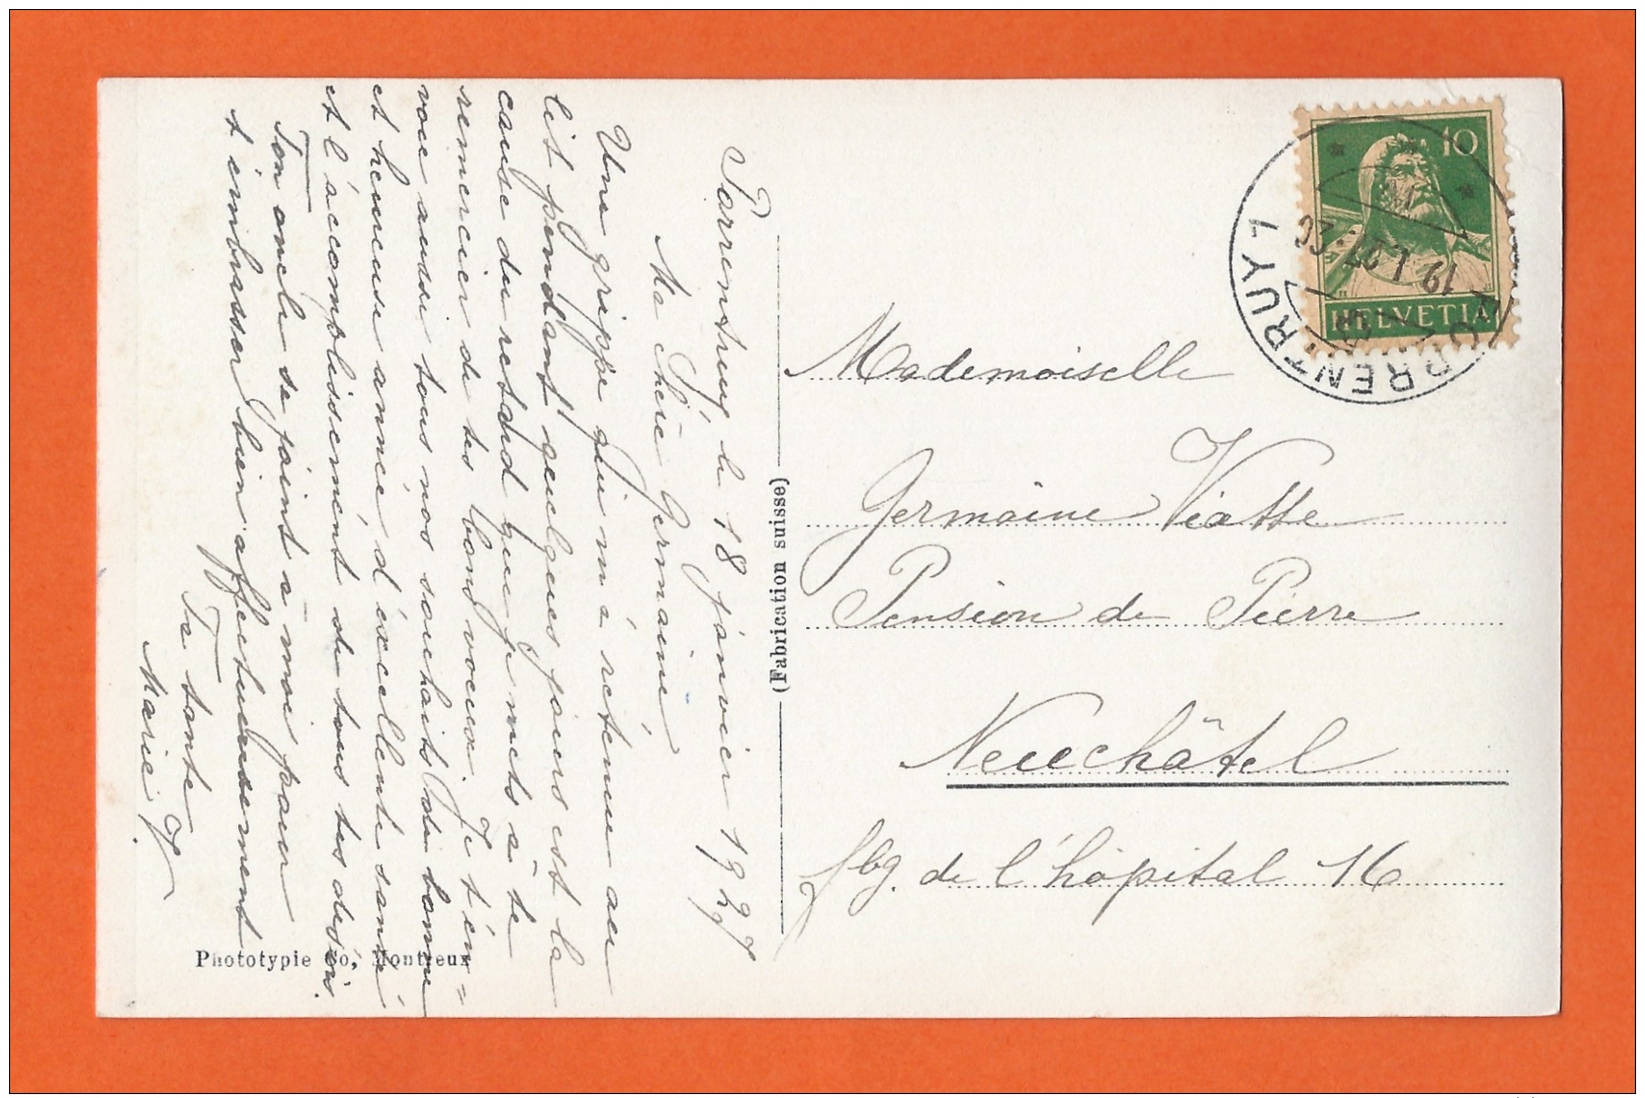 Porrentruy le 18 janvier 1927
Ma chère Germaine
Une grippe qui m'a retenue au
lit pendant quelques jours est la
cause du retard que je mets à te
remercier de tes bons voeux. Je t'en=
voie aussi tous nos souhaits de bonne
et heureuse année, d'excellente santé
et l'accomplissement de tous tes désirs.
Ton oncle se joint à moi pour
t'embrasser bien affectueusement
Ta tante
Marie J.
Phototypie Co, Montreux
(Fabrication suisse)
10
HELVETIA
PORRENTRUY 1
19. I. 27
Mademoiselle
Germaine Viatte
Pension de Pierre
Neuchâtel
fbg. de l'hôpital 16